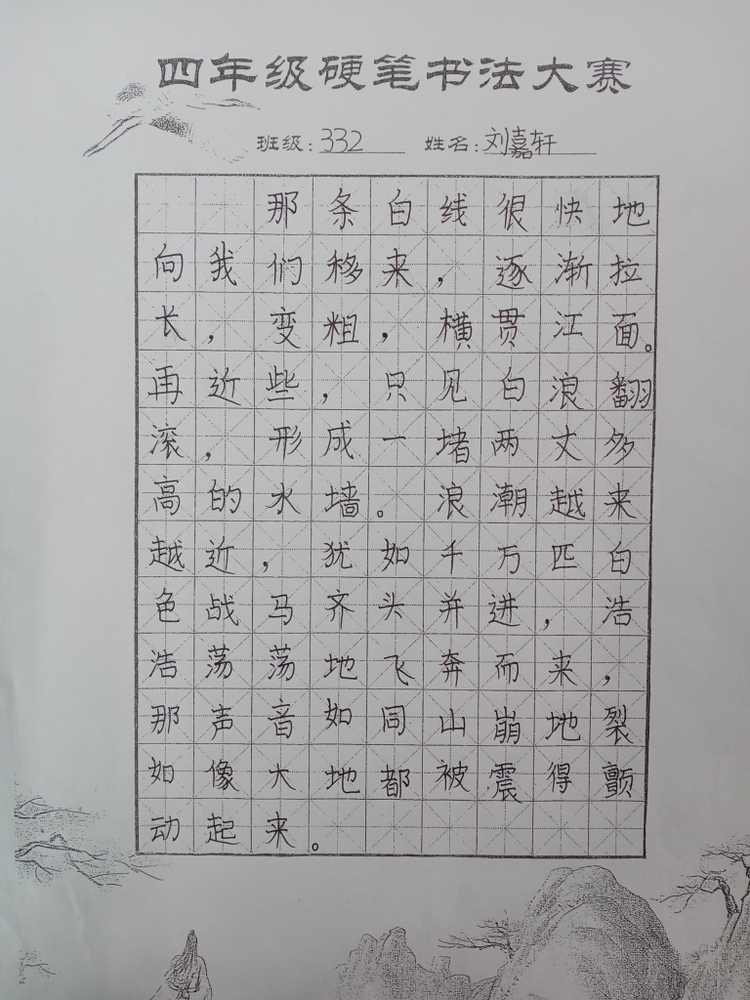 四年级硬笔书法大赛
班级：332 姓名：刘嘉轩
那条白线很快地
向我们移来，逐渐拉
长，变粗，横贯江面。
再近些，只见白浪翻
滚，形成一堵两丈多
高的水墙。浪潮越来
越近，犹如千万匹白
色战马齐头并进，浩
浩荡荡地飞奔而来，
那声音如同山崩地裂
如像大地都被震得颤
动起来。